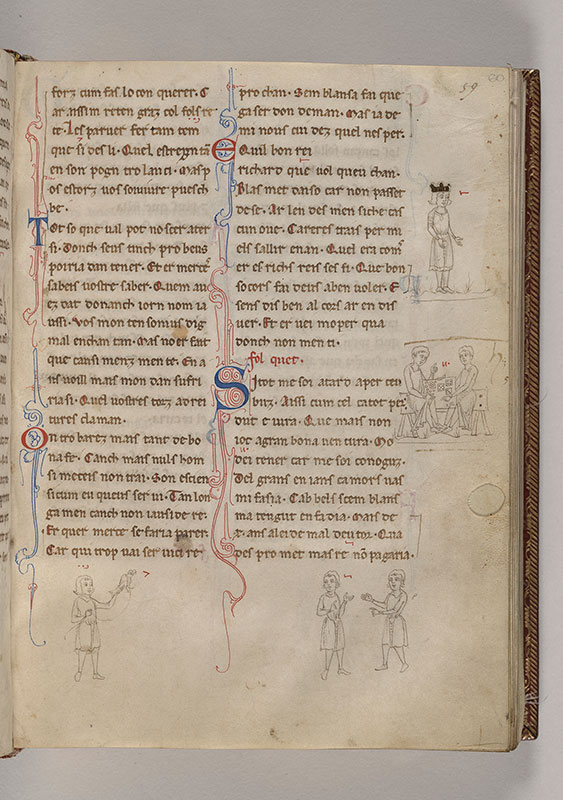 forz cum fas lo con querer. C
ar aissim reten graz col fols re
te. Les paruer fer tam tem
que si des li. Quel estreign tā
en son pogn tro lauci. mas p
os estorz uos souiuire puesch
be.
Tot so que ual pot noscer ater
si. Donch seus tinch pro bens
poiria dan tener. Et er merce
sabeis uostre saber. Quem au
ez dat donanch iorn nom ia
ussi. Uos mon ten somius dig
mal enchan tan. mas noer fait
que causi menz men te. En a
is uoill mais mon dan sufri
ria si. Quel uostres torz ad rei
tures claman.
On tro barez mais tant de bo
na fe. Canch mais nuls hom
si meteis non trai. Son escien
si cum eu queus ser ui. Tan lon
ga men canch non iausi de re.
Er quer merce se faria parer.
Car qui trop uai ser uici re
pro chan. Sem blansa fai que
ga ser don deman. Mas ia de
mi nous cui dez quel nes per.
E quil bon rei
richard que uol queu chan.
Blas met daiso car non passet
de se. Ar len des men siche cas
cun oue. Careres trais per mi
els sallir enan. Quel era com
er es richs reis ses fi. Que bon
so cors fai deus aben uoler. E
sens dis ben al cors ar en dis
uer. Et er uei mo per qua
donch non men ti.
fol quet.
Si tot me soi atard aper ceu
buz. Aissi cum cel catot per
dut e iura. Que mais non
ioc agran bona uen tura. Mo
dei tener car me soi conoguz.
Del grans en ians camors uas
mi fasia. Cab bels sem blans
ma tengut en fa dia. Mais de
.x. ans alei de mal deu tor. Cua
des pro met mas re nō pagaria.
59
60